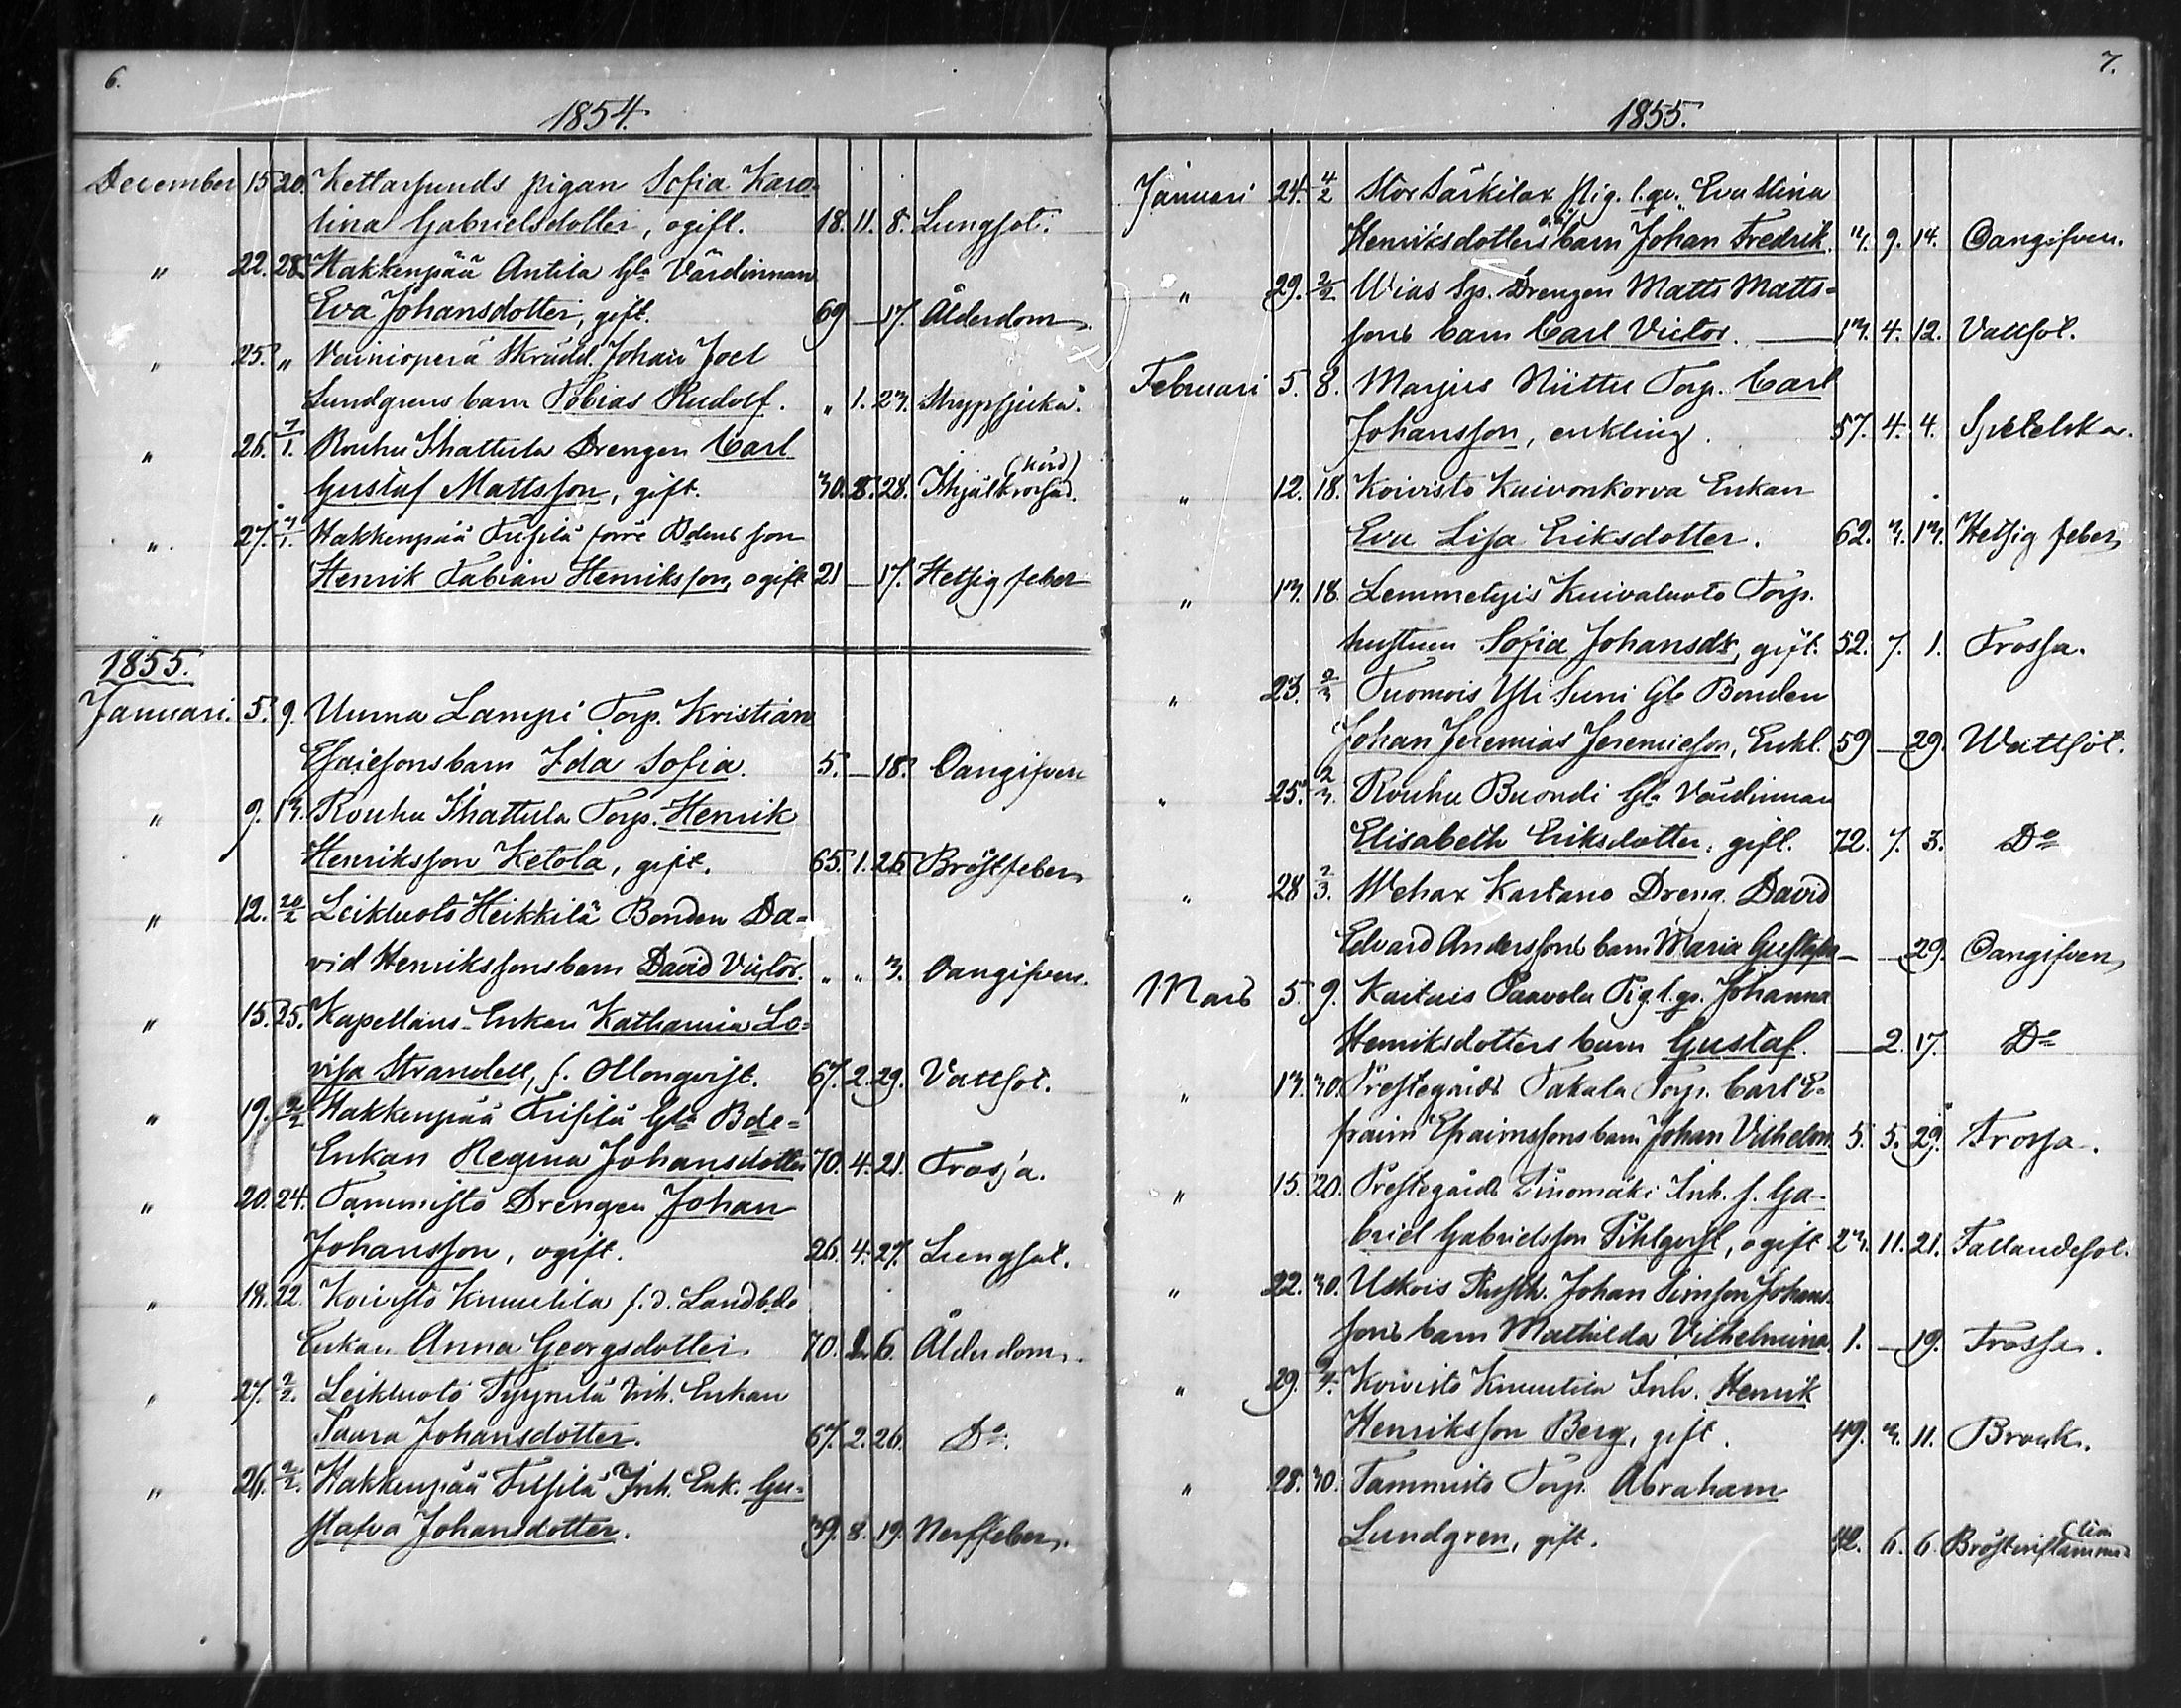 6.
1854.
December 15 20. Kettarsunds pigan Sofia Karo-
lina Gabrielsdotter, ogift. 18. 11. 8. Lungsot.
" 22. 28. Hakkenpää Antila Gla Värdinnan
Eva Johansdotter, gift. 69 — 17. Ålderdom.
" 25. " Vainioperä Skrädd. Johan Joel
Lundgrens barn Tobias Rudolf. " 1. 23. Strypsjuka.
" 26. 7/1. Rouhu Skattula Drengen Carl
(körd)
Gustaf Mattsson, gift. 30. 8. 28. Ihjälkrossad.
" 27. 7/1. Hakkenpää förre Bdens son
Henrik Fabian Henriksson, ogift 21 — 17. Hetsig feber
1855.
Januari. 5. 9. Unma Lampi Torp. Kristian
Esaiesons barn Ida Sofia. 5. — 18. Oangifven
" 9. 13. Rouhu Skattula Torp. Henrik
Henriksson Ketola, gift. 65. 1. 26. Bröstfeber
" 12. 20/2 Leikluoto Heikkilä Bonden Da-
vid Henrikssons barn David Victor. " " 3. Oangifven.
" 15. 25. Kapellans Enkan Katharina Lo-
visa Strandell, f. Ollonqvist. 67. 2. 29. Vattsot.
" 19. 2/2 Hakkenpää Gla Bde-
Enkan Regina Johansdotter 70. 4. 21. Frossa.
" 20. 24. Tammisto Drengen Johan
Johansson, ogift. 26. 4. 27. Lungsot.
" 18. 22. Koivisto Knuutila f.d. Landbde
Enkan Anna Georgsdotter. 70. 2. 6. Ålderdom.
" 27. 2/2. Leikluoto Tyynilä Inh. Enkan
Laura Johansdotter. 67. 2. 26. Do.
" 26. 2/2. Hakkenpää Inh. Enk. Gu-
stafva Johansdotter. 39. 8. 19. Nerffeber.
7.
1855.
Januari 24. 4/2 Stor Särkilax Pig. l.gr. Eva Stina
Henriksdotters barn Johan Fredrik. 3. 9. 14. Oangifven.
" 29. 2/2. Wias Sp. Drengen Matts Matts-
sons barn Carl Victor. — 13. 4. 12. Vattsot.
Februari 5. 8. Marjus Niittu Torp. Carl
Johansson, enkling. 57. 4. 4. Spetelska.
" 12. 18. Koivisto Kuivonkorva Enkan
Eva Lisa Eriksdotter. 62. 3. 13. Hetsig feber
" 13. 18. Lemmetyis Kuivaluoto Torp.
hustrun Sofia Johansdr, gift. 52. 7. 1. Frossa.
" 23. 2/3 Tuomois Yli Suni Gle Bonden
Johan Jeremias Jeremiesson, Enkl. 59 — 29. Wattsot.
" 25. 2/3. Rouhu Buondi Gla Värdinnan
Elisabeth Eriksdotter, gift. 72. 7. 3. Do
" 28 2/3. Wehax Kartano Dreng. David
Edvard Anderssons barn Maria — — 29. Oangifven
Mars 5. 9. Kaitais Paavola Pig. l.gr. Johanna
Henriksdotters barn Gustaf. — 2. 17. Do
" 13. 30. Prestegårds Takala Torp. Carl E-
fraim Efraimssons barn Johan Vilhelm 5. 5. 29. Frossa.
" 15. 20. Prestegårds Linomäki Inh. s. Ga-
briel Gabrielsson Pihlqvist, ogift 23. 11. 21. Fallandesot.
" 22. 30. Uskois Rusth. Johan Simson Johans-
sons barn Mathilda Vilhelmina 1. — 19. Frossa.
" 29. 9/4. Koivisto Knuutila Inh. Henrik
Henriksson Berg, gift. 49. 3. 11. Bråck.
" 28. 30. Tammisto Torp. Abraham
Lundgren, gift. 42. 6. 6. Bröstinflamma-
tion